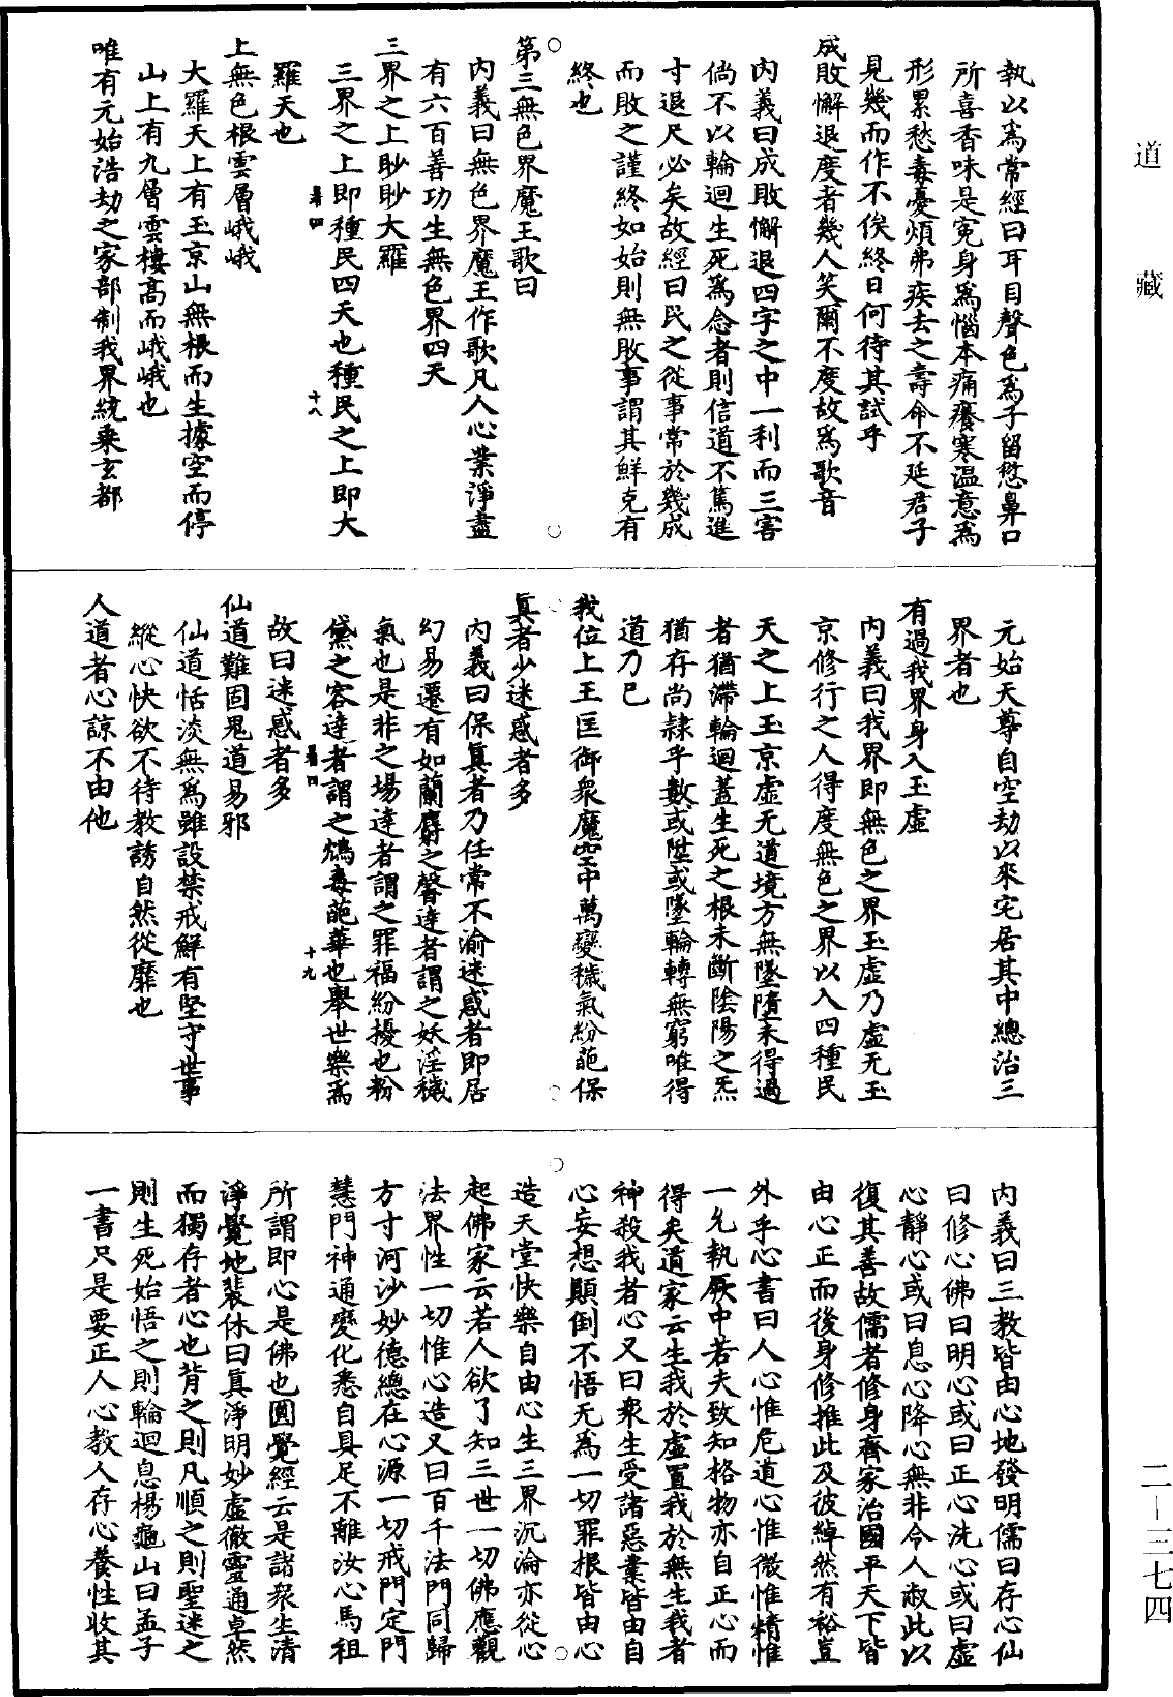 道藏
執以爲常經曰耳目聲色爲子留愆鼻口
所喜香味是冤身爲惱本痛癢寒温意爲
形累愁毒憂煩弗疾去之壽命不延君子
見幾而作不俟終日何待其試乎
成敗懈退度者幾人笑爾不度故爲歌音
内義曰成敗懈退四字之中一利而三害
倘不以輪迴生死爲念者則信道不篤進
寸退尺必矣故經曰民之從事常於幾成
而敗之謹終如始則無敗事謂其鮮克有
終也
第三無色界魔王歌曰
内義曰無色界魔王作歌凡人心業淨盡
有六百善功生無色界四天
三界之上眇眇大羅
三界之上即種民四天也種民之上即大
羅天也
上無色根雲層峨峨
大羅天上有玉京山無根而生據空而停
山上有九層雲樓高而峨峨也
唯有元始浩劫之家部制我界統乘玄都
十八
元始天尊自空劫以來宅居其中總治三
界者也
有過我界身入玉虛
内義曰我界即無色之界玉虛乃虛无玉
京修行之人得度無色之界以入四種民
天之上玉京虛无道境方無墜墮未得過
者猶滯輪迴蓋生死之根未斷陰陽之炁
猶存尚隷乎數或陞或墜輪轉無窮唯得
道乃已
我位上王匡御衆魔空中萬變穢氣紛葩保
真者少迷惑者多
内義曰保真者乃任常不渝迷惑者即居
幻易遷有如蘭麝之馨達者謂之妖淫穢
氣也是非之場達者謂之罪福紛擾也粉
黛之容達者謂之鴆毒葩華也舉世樂爲
故曰迷惑者多
仙道難固鬼道易邪
仙道恬淡無爲雖設禁戒鮮有堅守世事
縱心快欲不待教誘自然從靡也
人道者心諒不由他
十九
内義曰三教皆由心地發明儒曰存心仙
曰修心佛曰明心或曰正心洗心或曰虛
心靜心或曰息心降心無非令人淑此以
復其善故儒者修身齊家治國平天下皆
由心正而後身修推此及彼綽然有裕豈
外乎心書曰人心惟危道心惟微惟精惟
一允執厥中若夫致知格物亦自正心而
得矣道家云生我於虛置我於無生我者
神殺我者心又曰衆生受諸惡業皆由自
心妄想顛倒不悟无為一切罪根皆由心
造天堂快樂自由心生三界沉淪亦從心
起佛家云若人欲了知三世一切佛應觀
法界性一切惟心造又曰百千法門同歸
方寸河沙妙德總在心源一切戒門定門
慧門神通變化悉自具足不離汝心馬祖
所謂即心是佛也圓覺經云是諸衆生清
淨覺地裴休曰真淨明妙虛徹靈通卓然
而獨存者心也背之則凡順之則聖迷之
則生死始悟之則輪迴息楊龜山曰孟子
一書只是要正人心教人存心養性收其
二-三七四